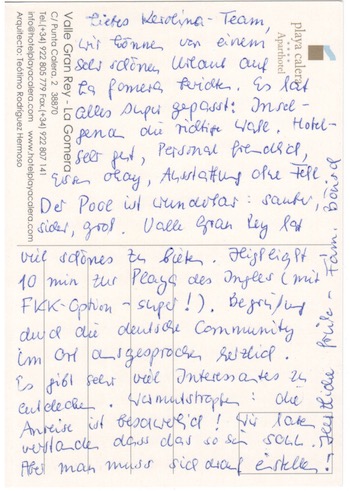 playa calera
Aparthotel
Valle Gran Rey - La Gomera
C/ Punta Calera, 2 38870
Tel.(+34) 922 805 779 Fax.(+34) 922 807 141
info@hotelplayacalera.com www.hotelplayacalera.com
Arquitecto: Teotimo Rodríguez Hermoso
Liebes Karolina-Team,
wir können von einem
sehr schönen Urlaub auf
La Gomera berichten. Es hat
alles super gepasst: Insel-
genau die richtige Wahl. Hotel-
sehr gut, Personal freundlich,
Essen okay, Ausstattung ohne Fehl.
Der Pool ist wunderbar: sauber,
sicher, groß. Valle Gran Rey hat
viel schönes zu bieten. Highlight
10 min zur Playa des Ingles (mit
FKK-Option - super!). Begrüßung
durch die deutsche Community
im Ort ausgesprochen herzlich.
Es gibt sehr viel Interessantes zu
entdecken. Wermutstropfen: die
Anreise ist beschwerlich! Wir haben
verstanden dass das so sein soll.
Aber man muss sich drauf einstellen!
Herzliche Grüße - Fam.